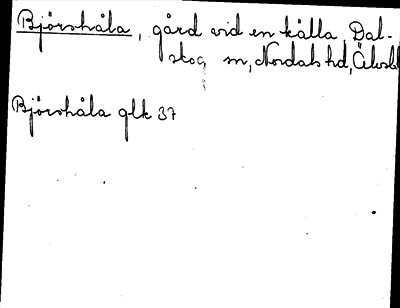 Björshåla, gård vid en källa Dal-
skog sn, Nordals hd, Älvsbl
Björshåla glk 37